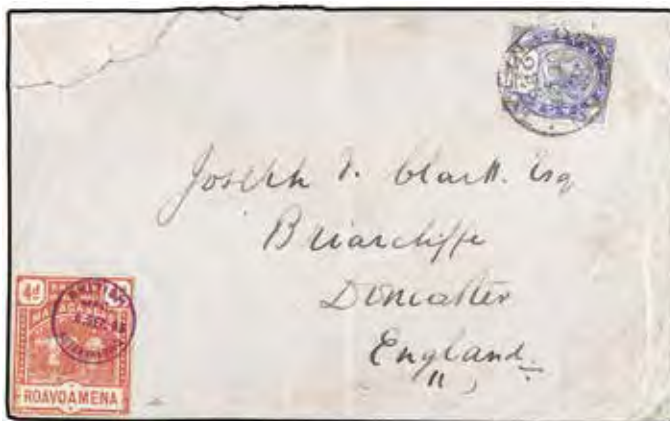 Joseph T. Clark. Esq
Briarcliffe
Doncaster
England.
4d
BRITISH
ROAVOAMENA